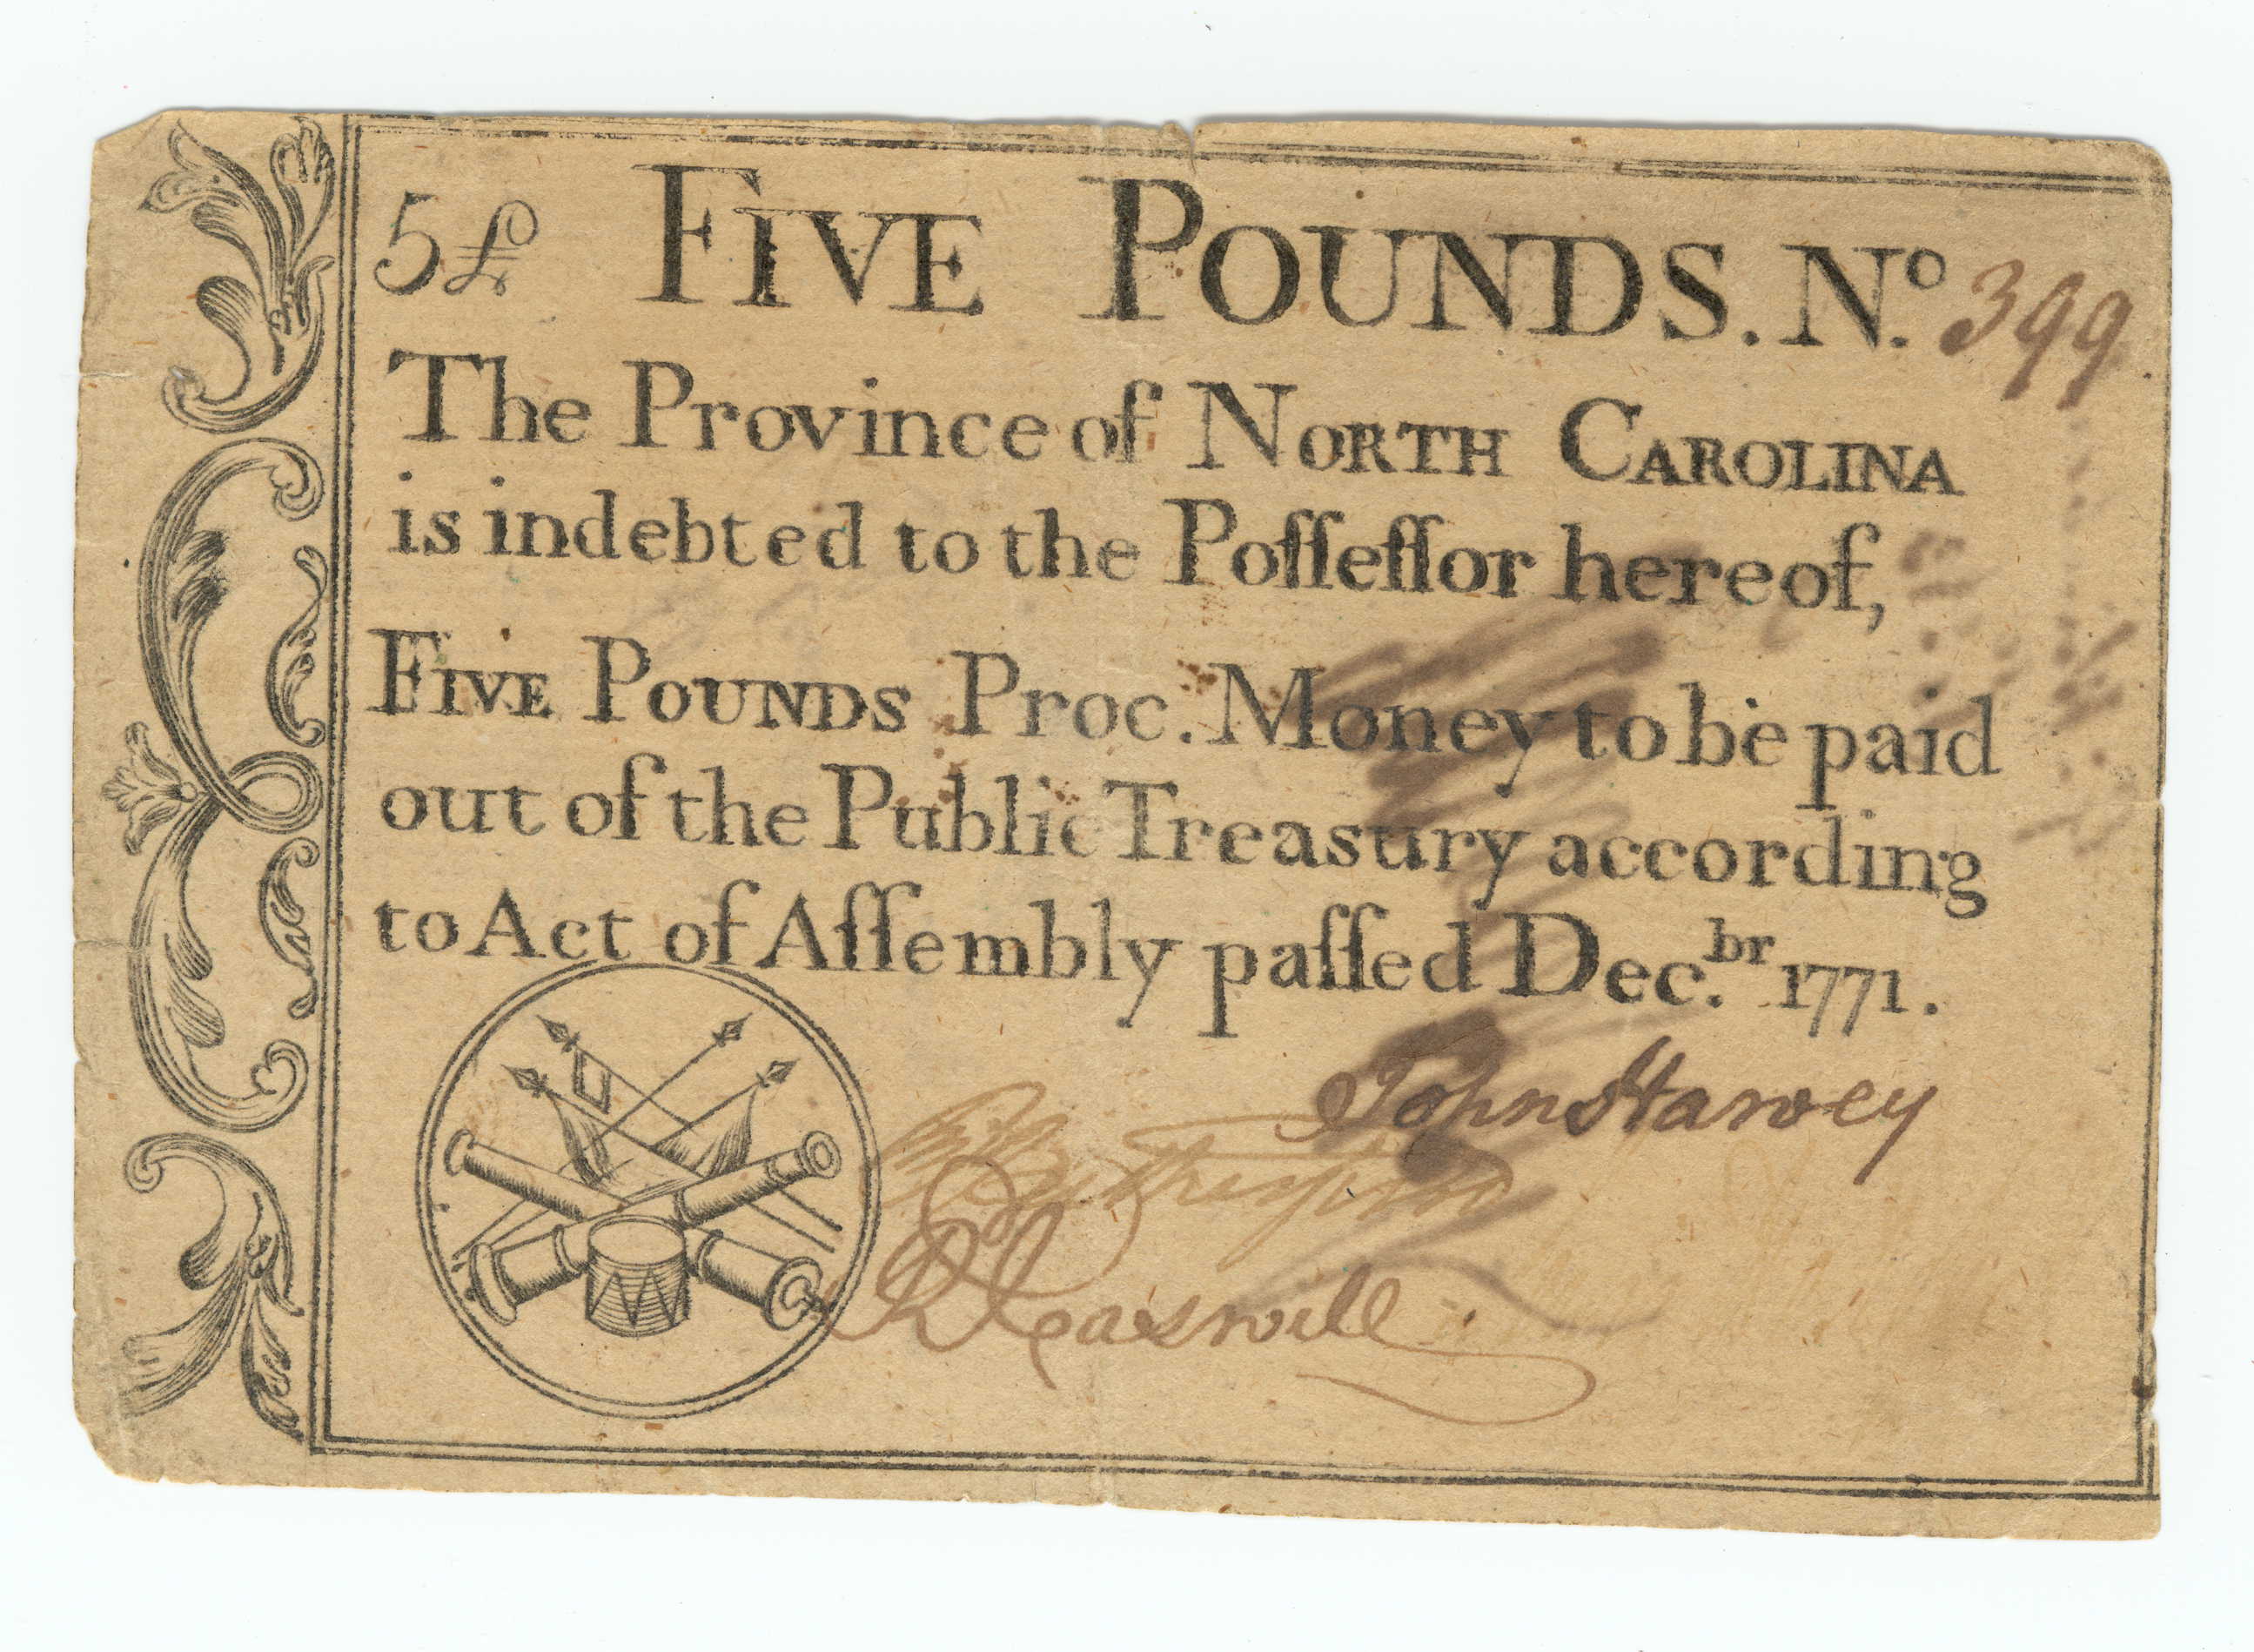 5£ FIVE POUNDS. Nº. 399
The Province of NORTH CAROLINA
is indebted to the Poſſeſſor hereof,
FIVE POUNDS Proc. Money to be paid
out of the Public Treasury according
to Act of Aſſembly paſſed Dec.br 1771.
John Harvey
Rutherfurd
R Caswell